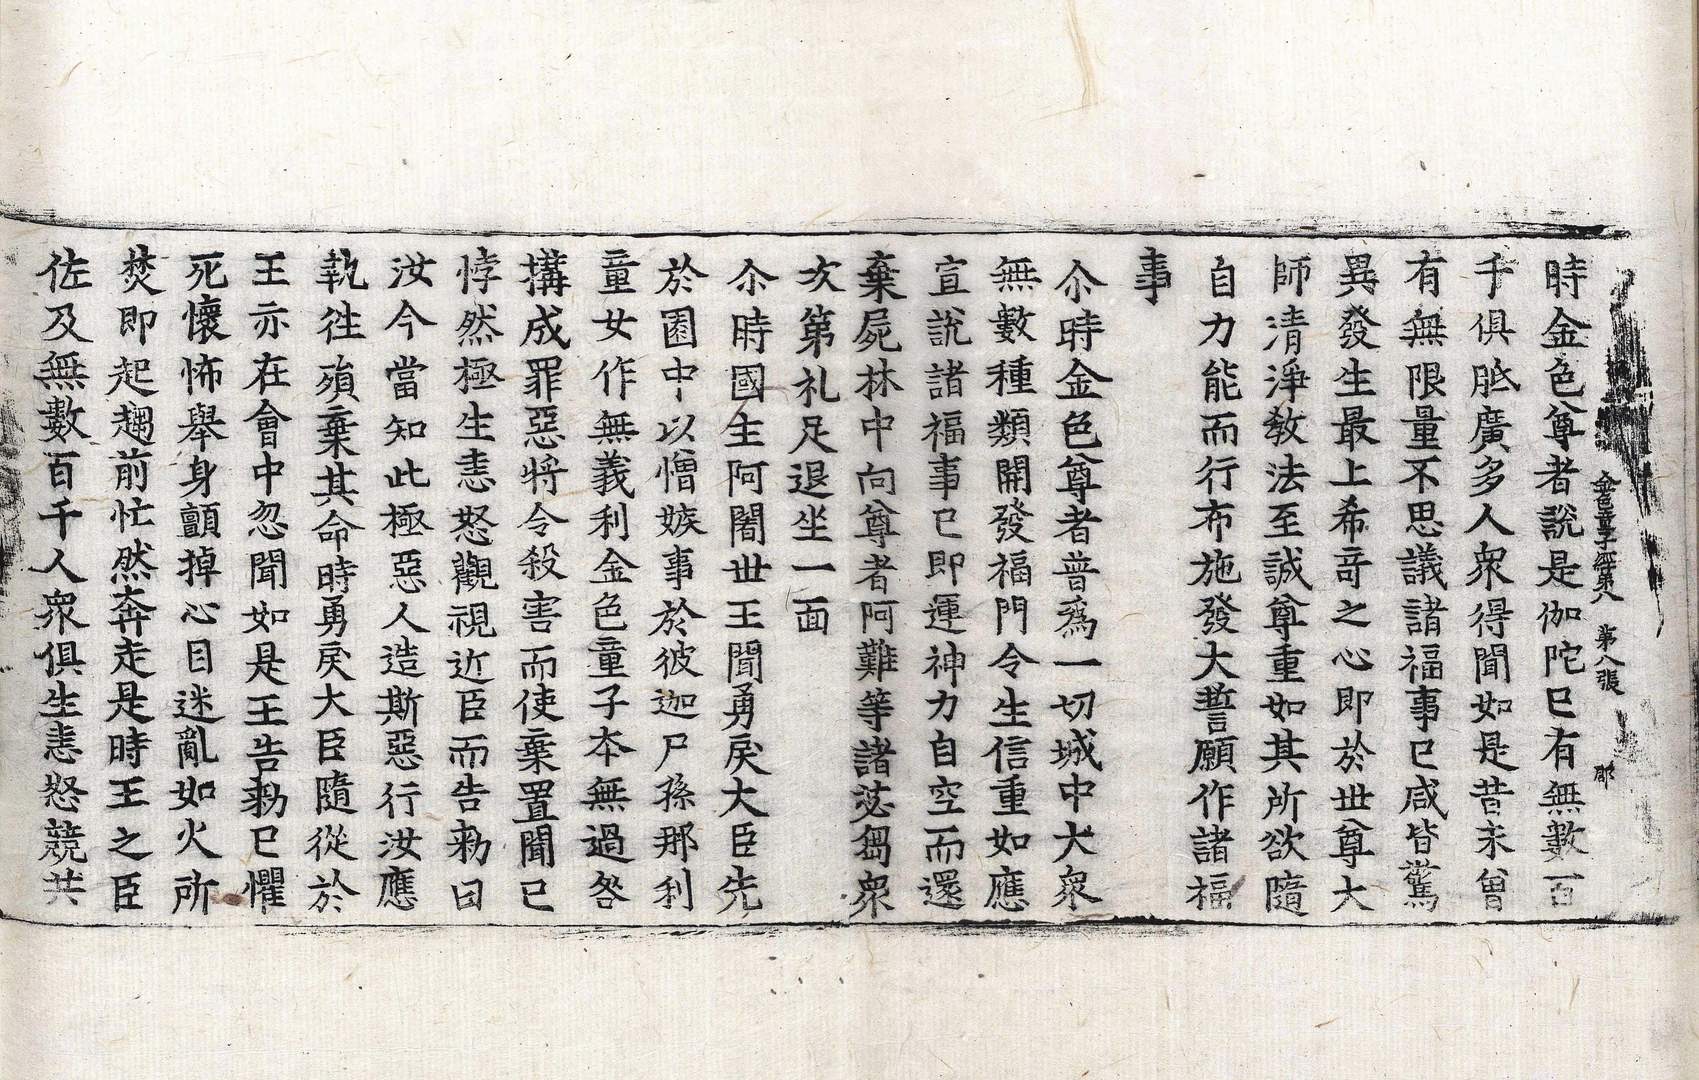 金色童子經第八 第八張 郡
時金色尊者說是伽陀已有無數百
千俱胝廣多人衆得聞如是昔未曾
有無限量不思議諸福事已咸皆驚
異發生最上希竒之心即於世尊大
師清淨教法至誠尊重如其所欲隨
自力能而行布施發大誓願作諸福
事
尒時金色尊者普爲一切城中大衆
無數種類開發福門令生信重如應
宣說諸福事已即運神力自空而還
棄屍林中向尊者阿難等諸苾芻衆
次第礼足退坐一面
尒時國主阿闍世王聞勇戾大臣先
於園中以憎嫉事於彼迦尸孫那利
童女作無義利金色童子本無過咎
搆成罪惡將令殺害而使棄置聞已
悖然極生恚怒觀視近臣而告勑曰
汝今當知此極惡人造斯惡行汝應
執徃殞棄其命時勇戾大臣隨從於
王亦在會中忽聞如是王告勑已懼
死懷怖舉身顫掉心目迷亂如火所
焚即起趨前忙然奔走是時王之臣
佐及無數百千人衆俱生恚怒競共